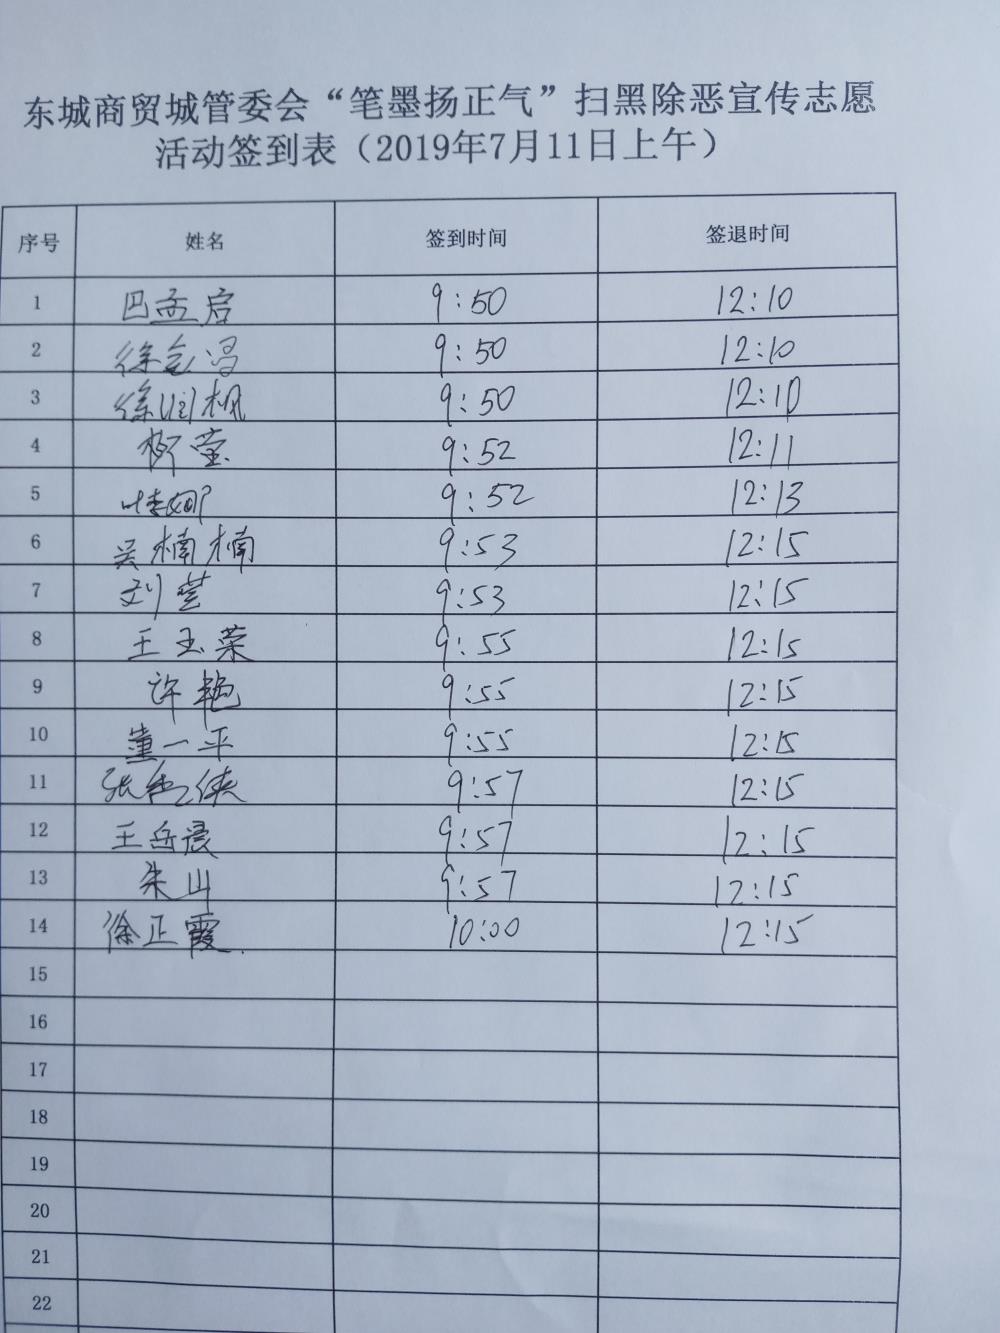 东城商贸城管委会“笔墨扬正气”扫黑除恶宣传志愿
活动签到表（2019年7月11日上午）
序号 姓名 签到时间 签退时间
1 巴孟启 9:50 12:10
2 徐 9:50 12:10
3 徐润枫 9:50 12:10
4 柳莹 9:52 12:11
5 叶李娜 9:52 12:13
6 吴楠楠 9:53 12:15
7 刘 9:53 12:15
8 王玉荣 9:55 12:15
9 许艳 9:55 12:15
10 董一平 9:55 12:15
11 张 侠 9:57 12:15
12 王岳 9:57 12:15
13 朱山 9:57 12:15
14 徐正霞 10:00 12:15
15
16
17
18
19
20
21
22